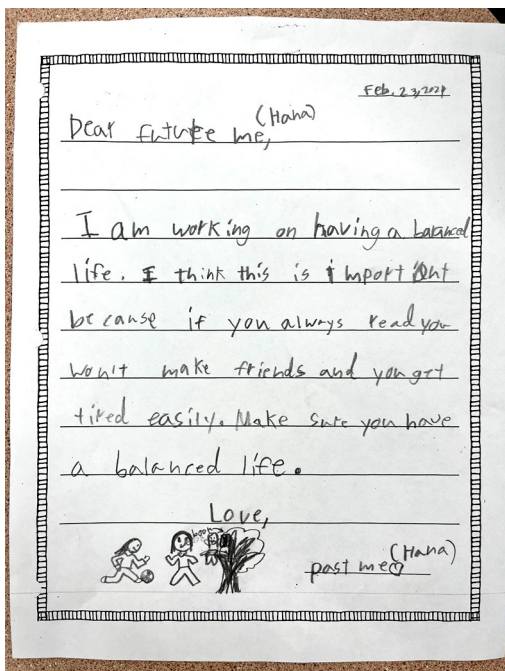 Feb. 23, 2021
(Hana)
Dear future me,
I am working on having a balanced
life. I think this is importiant
because if you always read you
won't make friends and you get
tired easily. Make sure you have
a balanced life.
Love,
book
(Hana)
past me